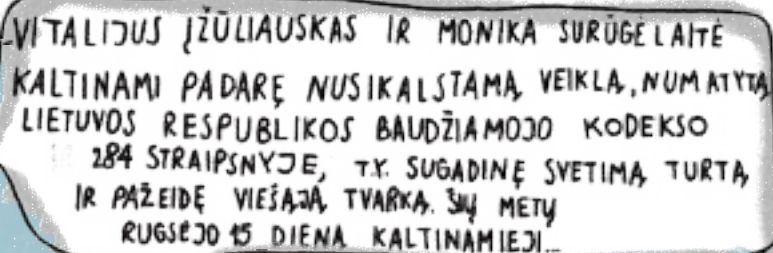 VITALIJUS ĮŽŪLIAUSKAS IR MONIKA SURŪGĖLAITĖ
KALTINAMI PADARĘ NUSIKALSTAMĄ VEIKLĄ, NUMATYTĄ
LIETUVOS RESPUBLIKOS BAUDŽIAMOJO KODEKSO
284 STRAIPSNYJE, T.Y. SUGADINĘ SVETIMĄ TURTĄ
IR PAŽEIDĘ VIEŠĄJĄ TVARKĄ. ŠIŲ METŲ
RUGSĖJO 15 DIENĄ KALTINAMIEJI...